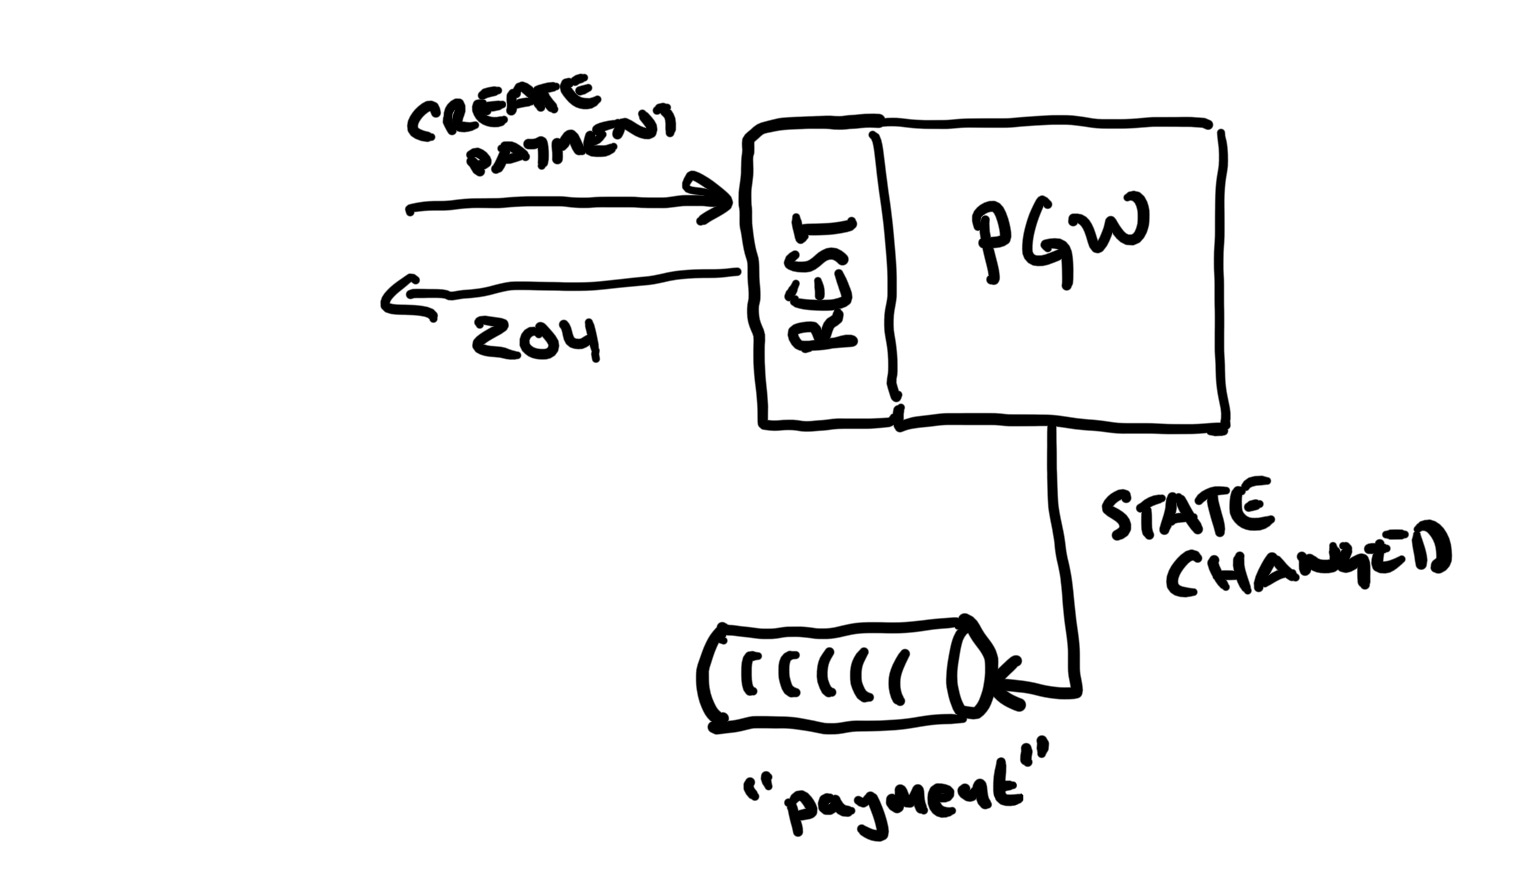 CREATE
PAYMENT
204
REST
PGW
STATE
CHANGED
"payment"